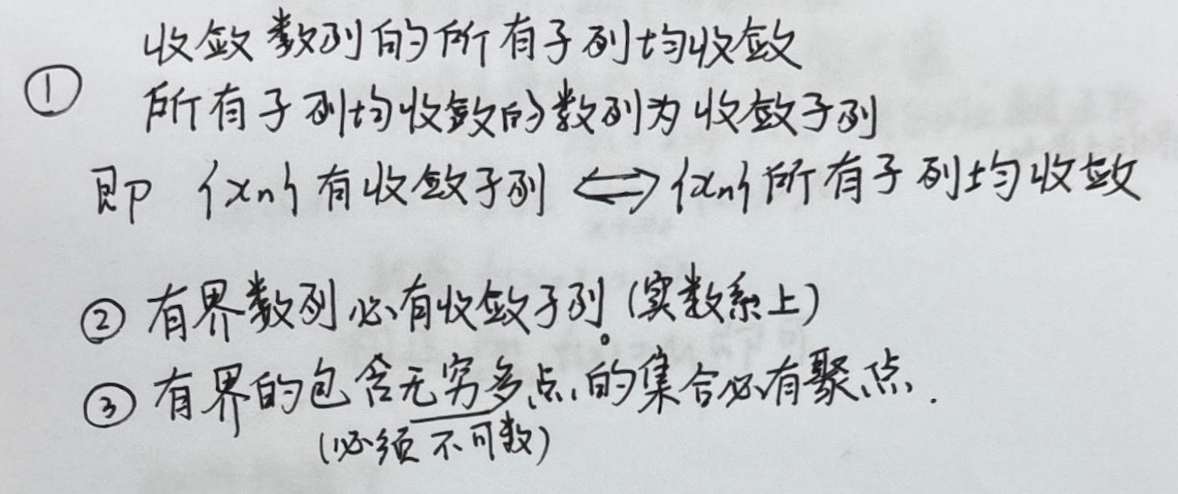 收敛数列的所有子列均收敛
① 所有子列均收敛的数列为收敛子列
即 {xn} 有收敛子列 ⟺ {xn} 所有子列均收敛
② 有界数列必有收敛子列。(实数系上)
③ 有界的包含无穷多点的集合必有聚点.
(必须不可数)